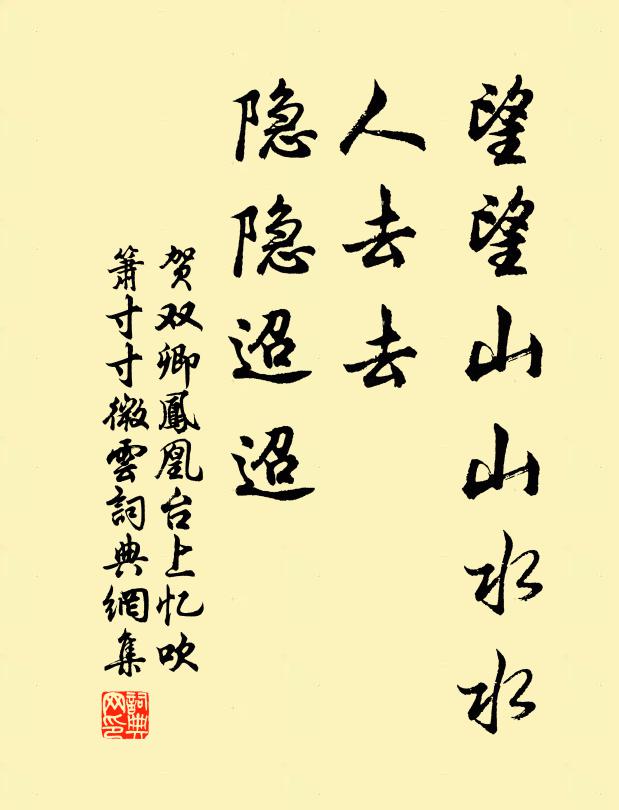 望望山山水水
人去去
隐隐迢迢
贺双卿鳳凰台上忆吹
箫寸寸微雲詞典網集
詞典
网印